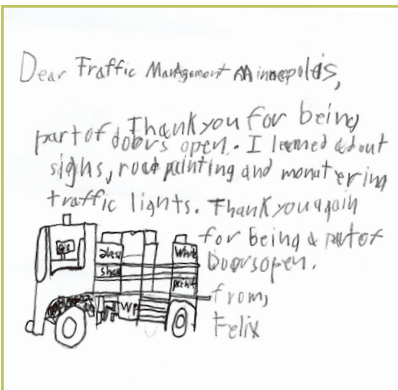 Dear Traffic Management Minneapolis,
Thank you for being
part of doors open. I learned about
sighs, road painting and monatering
traffic lights. Thank you again
for being a part of
Doors open.
from,
Felix
White
paint